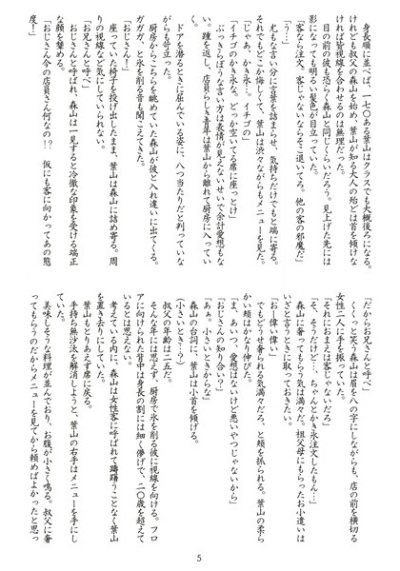 身長順に並べば、一七〇ある葉山はクラスでも大概後ろになる。
けれども叔父の森山を始め、葉山が知る大人の殆どは首を傾げな
ければ皆視線を合わせるのは無理だった。
目の前の彼も恐らく森山と同じくらいだろう。見上げた先には
影になっても明るい髪色が目立っていた。
「客なら注文、客じゃないならそこ退いてろ。他の客の邪魔だ」
「？…」
尤もな言い分に言葉を詰まらせ、気持ちだけでもと端に寄る。
それでもどこか悔しくて、葉山は渋々ながらもメニューを見た。
「じゃあ、かき氷…。イチゴの」
「イチゴのかき氷な。どっか空いてる席に座っとけ」
ぶっきらぼうな言い方は表情が見えないせいで余計愛想もな
い。踵を返し、店員らしき青年は葉山から離れて厨房に入ってい
く。
ドアを潜るときに屈んでいる姿に、八つ当たりだと判っていな
がらも苛立った。
厨房からこちらを眺めていた森山が彼と入れ違いに出てくる。
ガガガ、と氷を削る音も聞こえてきた。
「おじさん！」
座っていた椅子を投げ出したまま、葉山は森山に詰め寄る。周
りの視線など気にしていられない。
「お兄さんと呼べ」
おじさんと呼ばれ、森山は一見すると冷徹な印象も受ける端正
な顔を顰める。
「おじさん今の店員さん何なの!?　仮にも客に向かってあの態
度！」
「だからお兄さんと呼べ」
くくっと笑う森山は眉をへの字にしながらも、店の前を横切る
女性二人に手を振っていた。
「それにおまえは客じゃないだろ」
「そ、そうだけど…、ちゃんとかき氷注文したもん…」
森山に奢ってもらう気は満々だ。祖父母にもらったお小遣いは
いざと言うときに取っておきたい。
「おー偉い偉い」
でもどうせ奢られる気満々だろ、と頬を抓られる。葉山の柔ら
かい頬はかなり伸びた。
「ま、あいつ、愛想はないけど悪いやつじゃないから」
「おじさんの知り合い？」
「あぁ、小さいときからな」
森山の台詞に、葉山は小首を傾げる。
（小さいとき…？）
叔父の年齢は二五だ。
そんな年には思えず、厨房で氷を削る彼に視線を向ける。フロ
アに向けられた背中は身長の割には細く儚げで、二〇歳を超えて
いるとは思えない。
考えている内に、森山は女性客に呼ばれて躊躇うことなく葉山
を置き去りにしていた。
葉山もとりあえず席に戻る。
手持ち無沙汰を解消しようと、葉山の右手はメニューを手にし
ていた。
美味しそうな料理が並んでおり、お腹が小さく鳴る。叔父に奢
ってもらうのだからメニューを見てから頼めばよかったと思っ
5